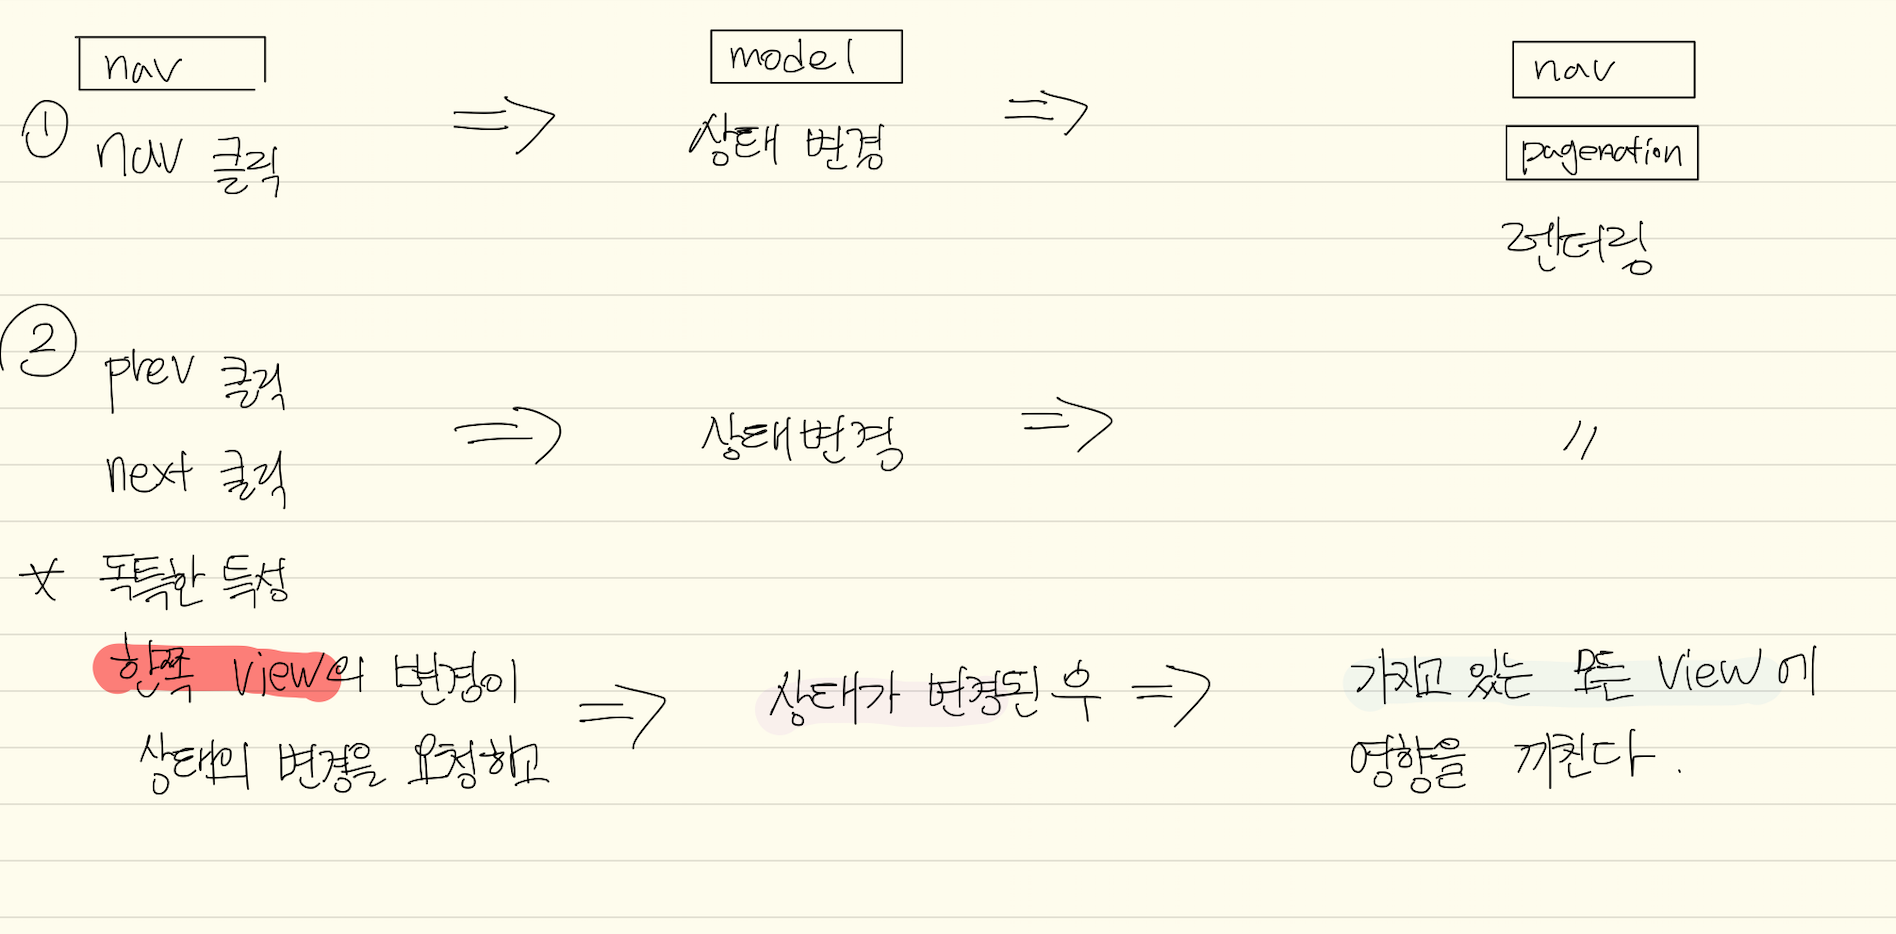 nav
model
nav
① nav 클릭 => 상태 변경 =>
pagenation
렌더링
②
prev 클릭
next 클릭
=> 상태변경 => 〃
* 독특한 특성
한쪽 view의 변경이
상태의 변경을 요청하고
=> 상태가 변경된 후 =>
가지고 있는 모든 view에
영향을 끼친다.